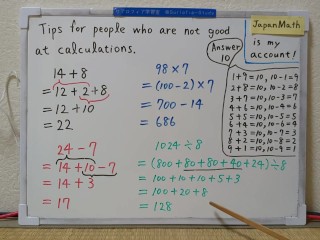 Tips for people who are not good
at calculations.
JapanMath
is my
account!
Answer
10
1+9=10, 10-1=9
2+8=10, 10-2=8
3+7=10, 10-3=7
4+6=10, 10-4=6
5+5=10, 10-5=5
6+4=10, 10-6=4
7+3=10, 10-7=3
8+2=10, 10-8=2
9+1=10, 10-9=1
14+8
=12+2+8
=12+10
=22
98×7
=(100-2)×7
=700-14
=686
24-7
=14+10-7
=14+3
=17
1024÷8
=(800+80+80+40+24)÷8
=100+10+10+5+3
=100+20+8
=128